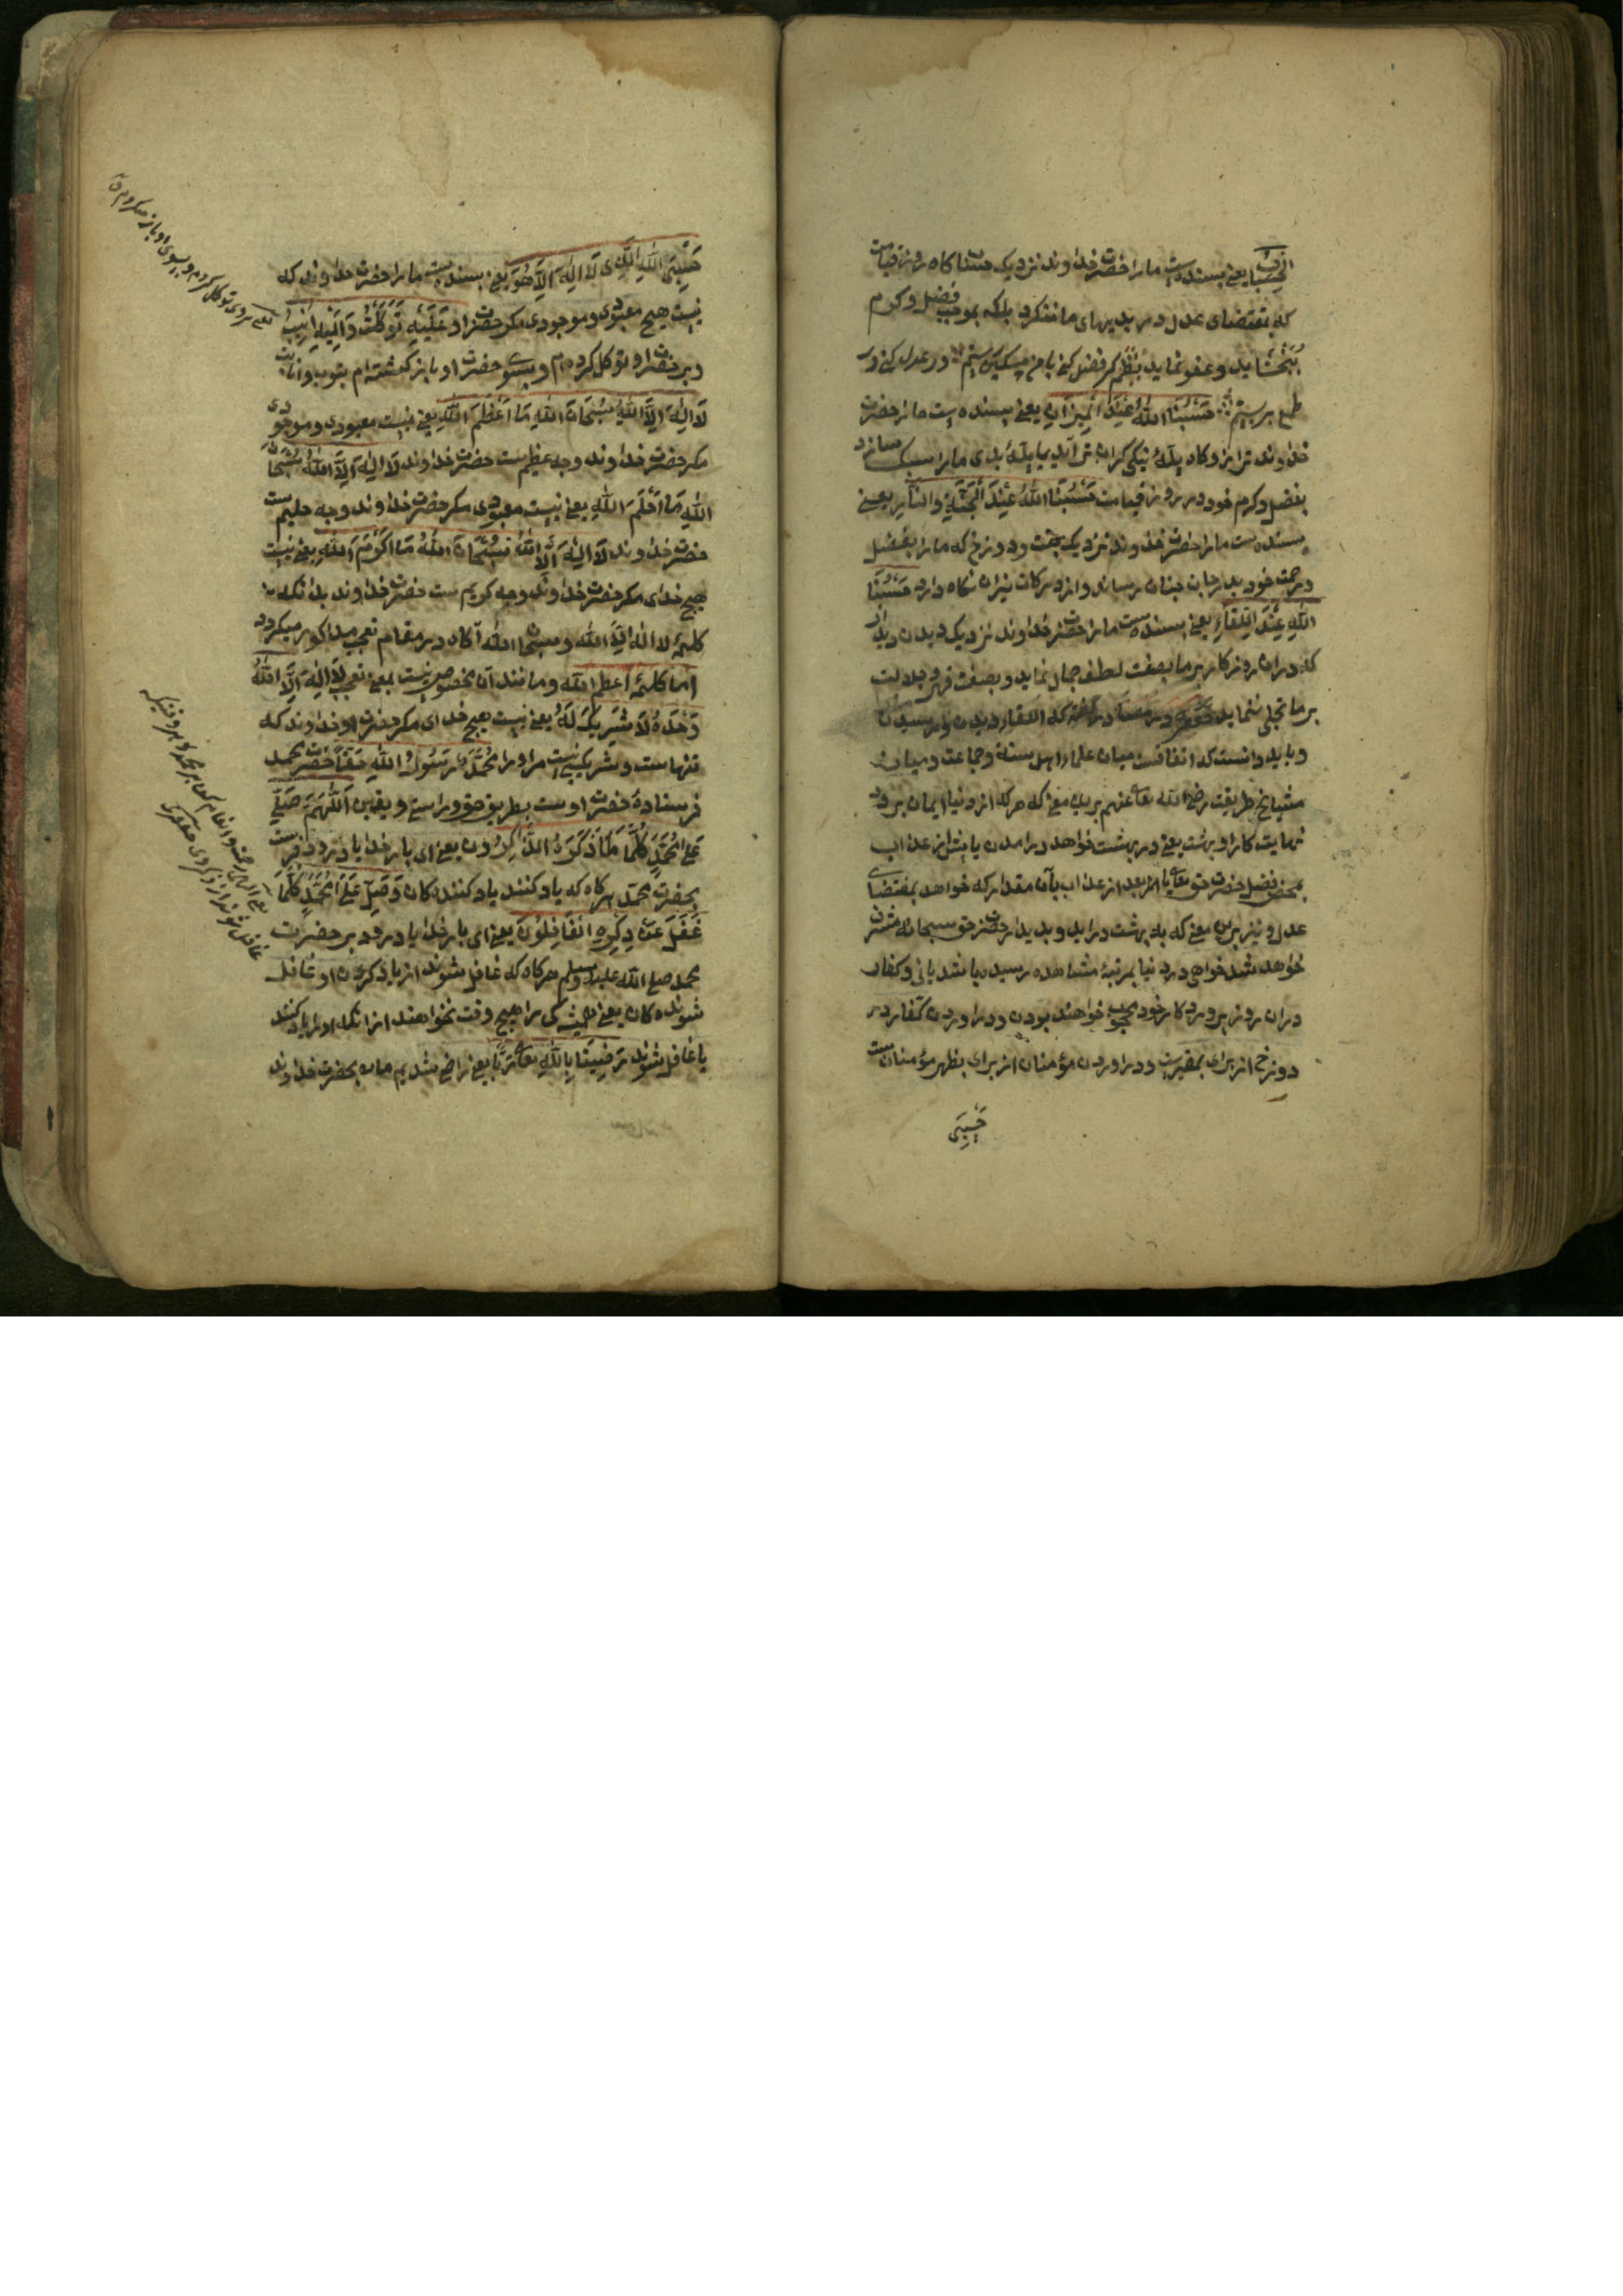 الحساب یعنی بسنده ست ما را حضرت خداوند نزدیک حساب کاه روز قیامت
که بمقتضای عدل در بدیهای ما ننکرد بلکه بموجب فضل و کرم
بخشاید و عفو نماید نظم کر فضل کنی با من مسکین رستم ور عدل کنی
حَسْبُنَا اللهُ عِنْدَ الْمِيزَانِ یعنی بسنده ست ما را حضرت
خداوند ترازو کاه پلهٔ نیکی کران تر آید یا پلهٔ بدی ما را سبک سازد
بفضل و کرم خود در روز قیامت حَسْبُنَا اللهُ عِنْدَ الْجَنَّةِ وَالنَّارِ یعنی
بسنده ست ما را حضرت خداوند نزدیک جنت و دوزخ که ما را بفضل
و رحمت خود بدرجات جنان رساند و از درکات نیران نکاه دارد حَسْبُنَا
اللهُ عِنْدَ اللِّقَاءِ یعنی بسنده ست ما را حضرت خداوند نزدیک دیدن دیدار
که دران روز کار بر ما بصفت لطف جمال نماید و بصفت قهر و جلالت
بر ما تجلی ننماید در کفته که اللقاء دیدن و رسیدن
و باید دانست که اتفاقست میان علماء اهل سنة و جماعت و میان
مشایخ طریقت رضی الله تعالی عنهم برین معنی که هر که از دنیا ایمان برد
نهایت کار او بهشت یعنی در بهشت خواهد در امدن یا پیش از عذاب
بمحض فضل حضرت حق تعالی یا بعد از عذاب بآن مقدار که خواهد بمقتضای
عدل و نیز برین معنی که به بهشت دراید و بدیدار حضرت حق سبحانه مشرف
خواهد شد خواهی در دنیا بمرتبهٔ مشاهده رسیده باشد یا نی و کفار
دران روز از پروردکار خود محجوب خواهند بودن و دراوردن کفار در
دوزخ از برای و دراوردن مؤمنان از برای تطهر مؤمنان ست
حَسْبِيَ
حَسْبِيَ اللهُ الَّذِي لَا إِلٰهَ إِلَّا هُوَ یعنی بسنده ست ما را حضرت خداوند که
نیست هیچ معبودی و موجودی مکر حضرت او عَلَيْهِ تَوَكَّلْتُ وَإِلَيْهِ أُنِيبُ
و بر حضرت او توکل کرده ام و بسوی حضرت او باز کشته ام بتوبه و انابت
لَا إِلٰهَ إِلَّا اللهُ سُبْحَانَ اللهِ مَا أَعْظَمَ اللهَ یعنی نیست معبودی و موجودی
مکر حضرت خداوند و چه عظیم ست حضرت خداوند لَا إِلٰهَ إِلَّا اللهُ سُبْحَانَ
اللهِ مَا أَحْلَمَ اللهَ یعنی نیست معبودی مکر حضرت خداوند و چه حلیم ست
حضرت خداوند لَا إِلٰهَ إِلَّا اللهُ سُبْحَانَ اللهِ مَا أَكْرَمَ اللهَ یعنی نیست
هیچ خدای مکر حضرت خداوند و چه کریم ست حضرت خداوند بدانکه
کلمهٔ لا اله الا الله و سبحان الله آکاه در مقام تعجب مذکور میکردد
اما کلمهٔ اعظم الله و مانند آن مخصوص نیست بمعنی تعجب لَا إِلٰهَ إِلَّا اللهُ
وَحْدَهُ لَا شَرِيكَ لَهُ یعنی نیست هیچ خدای مکر حضرت او خداوند که
تنهاست و شریک نیست مر او را مُحَمَّدٌ رَسُولُ اللهِ حَقًّا حضرت محمد
فرستادهٔ حضرت اوست بطریق حق و راستی و یقین اَللّٰهُمَّ صَلِّ
عَلَى مُحَمَّدٍ كُلَّمَا ذَكَرَهُ الذَّاكِرُونَ یعنی ای بار خدایا درود فرست
بحضرت محمد هر کاه که یاد کنند یاد کنندکان وَصَلِّ عَلَى مُحَمَّدٍ كُلَّمَا
غَفَلَ عَنْ ذِكْرِهِ الْغَافِلُونَ یعنی ای بار خدایا درود بر حضرت
محمد صلی الله علیه و سلم هر کاه که غافل شوند از یاد کردن او غافل
شوندکان یعنی همیشه کی را هیچ وقت نخواهند از انکه او را یاد کنند
یا غافل شوند رَضِينَا بِاللهِ تَعَالَى رَبًّا یعنی راضی شدیم ما بحضرت خداوند
توکل کردم و بسوی او باز